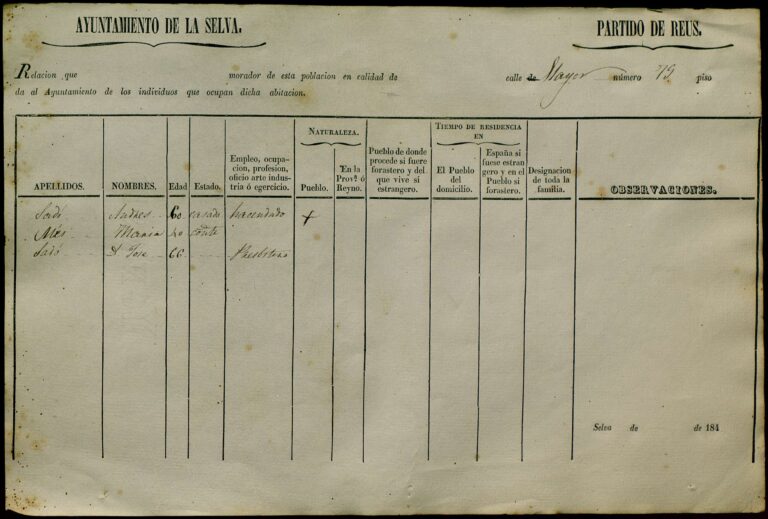 AYUNTAMIENTO DE LA SELVA.
PARTIDO DE REUS.
Relacion que morador de esta poblacion en calidad de calle de Mayor número 79 piso
da al Ayuntamiento de los individuos que ocupan dicha abitacion.
APELLIDOS.
NOMBRES.
Edad
Estado.
Empleo, ocupa-
cion, profesion,
oficio arte indus-
tria ó egercicio.
NATURALEZA.
Pueblo.
En la
Prov.ª ó
Reyno.
Pueblo de donde
procede si fuere
forastero y del
que vive si
estrangero.
TIEMPO DE RESIDENCIA
EN
El Pueblo
del
domicilio.
España si
fuese estran
gero y en el
Pueblo si
forastero.
Designacion
de toda la
familia.
OBSERVACIONES.
Andres 60 casado hacendado +
Maria
Jose 66 Presbitero
Selva de de 184